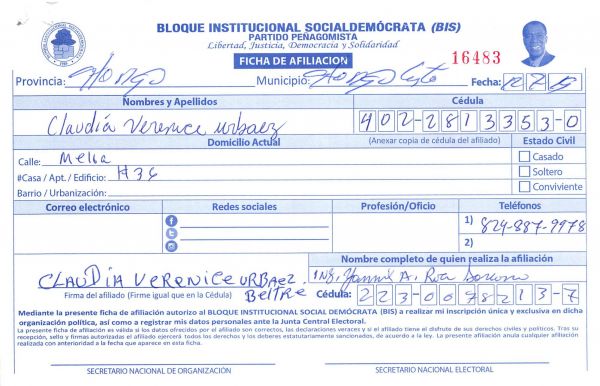 BLOQUE INSTITUCIONAL SOCIALDEMÓCRATA (BIS)
PARTIDO PEÑAGOMISTA
Libertad, Justicia, Democracia y Solidaridad
FICHA DE AFILIACIÓN
16483
Provincia: Municipio: Fecha:
Nombres y Apellidos Cédula
Claudia Verenice urbaez 402-2813353-0
Domicilio Actual (Anexar copia de cédula del afiliado) Estado Civil
Calle: Mella Casado
#Casa / Apt. / Edificio: #36 Soltero
Barrio / Urbanización: Conviviente
Correo electrónico Redes sociales Profesión/Oficio Teléfonos
1) 829-887-9978
2)
Nombre completo de quien realiza la afiliación
CLAUDIA VERENICE URBAEZ Ing. A.
BELTRE
Firma del afiliado (Firme igual que en la Cédula) Cédula: 223-0078213-7
Mediante la presente ficha de afiliación autorizo al BLOQUE INSTITUCIONAL SOCIAL DEMÓCRATA (BIS) a realizar mi inscripción única y exclusiva en dicha
organización política, así como a registrar mis datos personales ante la Junta Central Electoral.
La presente ficha de afiliación es valida si los datos ofrecidos por el afiliado son correctos, las declaraciones veraces y si el afiliado tiene el disfrute de sus derechos civiles y políticos. Tras su
recepción, sello y firmas autorizadas el afiliado ejercerá todos los derechos y los deberes estatutariamente sancionados, de acuerdo a la ley. La presente afiliación anula cualquier afiliación
realizada con anterioridad a la fecha que aparece en esta ficha.
SECRETARIO NACIONAL DE ORGANIZACIÓN SECRETARIO NACIONAL ELECTORAL